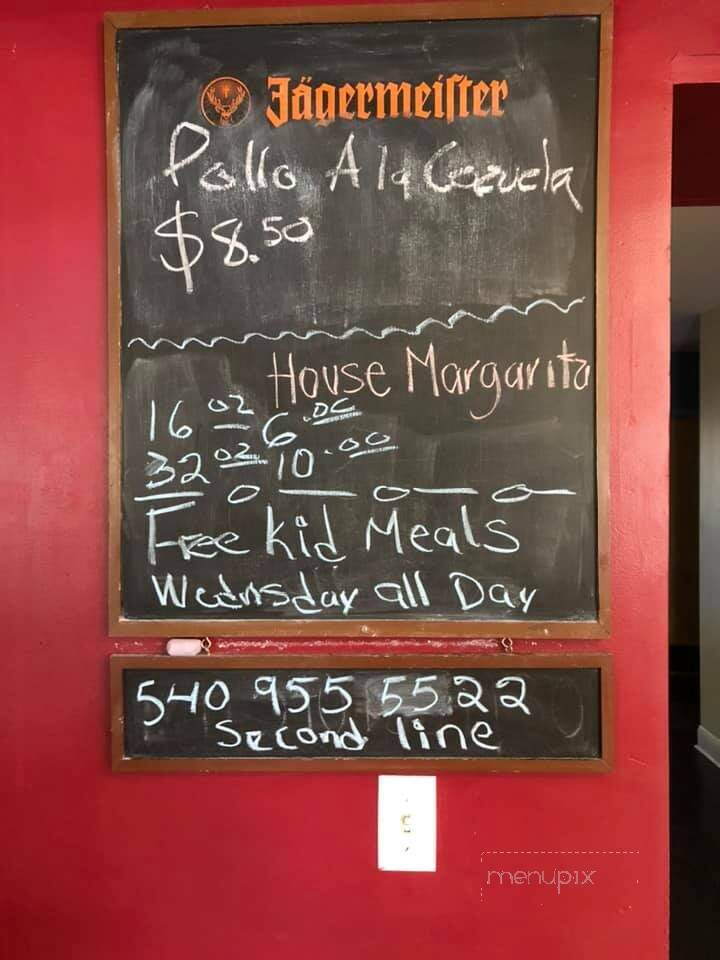 Jägermeister
Pollo A la Cazuela
$8.50
House Margarita
16 oz 6.00
32 oz 10.00
Free Kid Meals
Wednsday all Day
540 955 5522
Second line
menupix